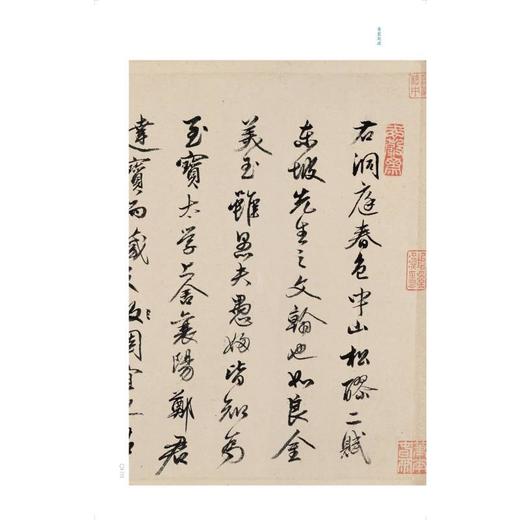 右洞庭春色中山松醪二賦
東坡先生之文翰也如良金
美玉雖愚夫愚婦皆知為
至寶太学上舍襄陽鄭君
達寶而